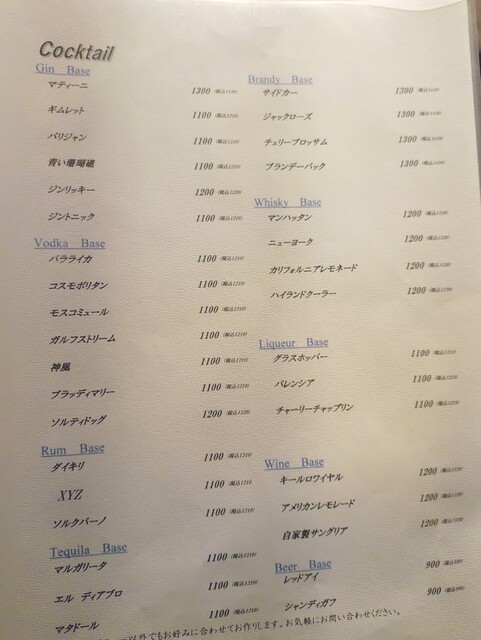 Cocktail
Gin Base
マティーニ 1300 (税込1430)
ギムレット 1100 (税込1210)
パリジャン 1100 (税込1210)
青い珊瑚礁 1100 (税込1210)
ジンリッキー 1200 (税込1320)
ジントニック 1100 (税込1210)
Vodka Base
バラライカ 1100 (税込1210)
コスモポリタン 1100 (税込1210)
モスコミュール 1100 (税込1210)
ガルフストリーム 1100 (税込1210)
神風 1100 (税込1210)
ブラッディマリー 1100 (税込1210)
ソルティドッグ 1200 (税込1320)
Rum Base
ダイキリ 1100 (税込1210)
XYZ 1100 (税込1210)
ソルクバーノ 1100 (税込1210)
Tequila Base
マルガリータ 1100 (税込1210)
エル ディアブロ 1100 (税込1210)
マタドール 1100 (税込1210)
Brandy Base
サイドカー 1300 (税込1430)
ジャックローズ 1300 (税込1430)
チェリーブロッサム 1300 (税込1430)
ブランデーバック 1300 (税込1430)
Whisky Base
マンハッタン 1200 (税込1320)
ニューヨーク 1200 (税込1320)
カリフォルニアレモネード 1200 (税込1320)
ハイランドクーラー 1200 (税込1320)
Liqueur Base
グラスホッパー 1100 (税込1210)
バレンシア 1100 (税込1210)
チャーリーチャップリン 1100 (税込1210)
Wine Base
キールロワイヤル 1200 (税込1320)
アメリカンレモレード 1200 (税込1320)
自家製サングリア 1200 (税込1320)
Beer Base
レッドアイ 900 (税込990)
シャンディガフ 900 (税込990)
以外でもお好みに合わせてお作りします。お気軽にお問い合わせください。